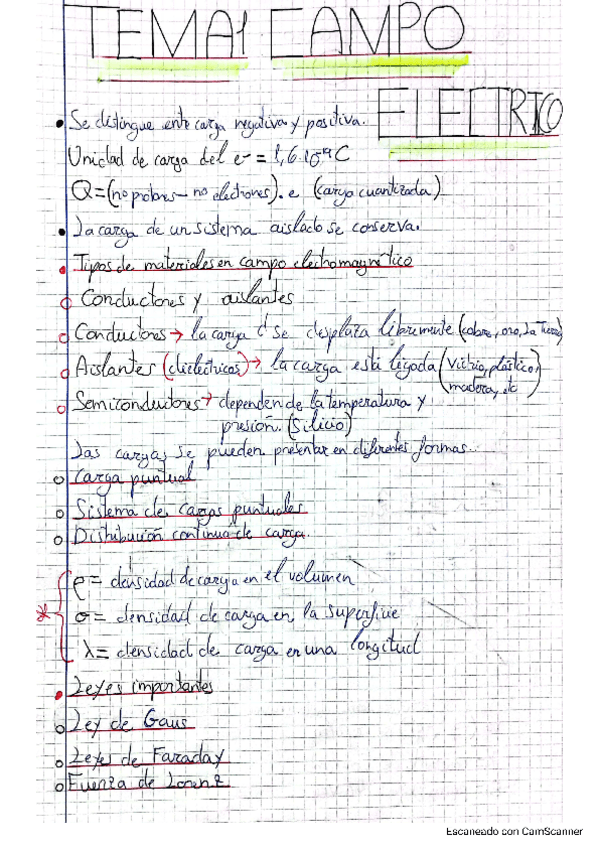 TEMA1 CAMPO
ELECTRICO
• Se distingue entre carga negativa y positiva.
Unidad de carga del e⁻ = 1,6·10⁻¹⁹C
Q=(nºprotones - nº electrones).e (carga cuantizada)
• La carga de un sistema aislado se conserva.
• Tipos de materiales en campo electromagnético
o Conductores y aislantes
o Conductores → la carga se desplaza libremente (cobre, oro, La Tierra)
o Aislantes (dieléctricos) → la carga está ligada (Vidrio, plástico, madera, etc
o Semiconductores → dependen de la temperatura y
presión. (Silicio)
Las cargas se pueden presentar en diferentes formas..
o Carga puntual
o Sistema de cargas puntuales
o Distribución continua de carga.
* ρ = densidad de carga en el volumen
σ = densidad de carga en la superficie
λ = densidad de carga en una longitud
• Leyes importantes
o Ley de Gaus
o Leyes de Faraday
o Fuerza de Lorenz
Escaneado con CamScanner